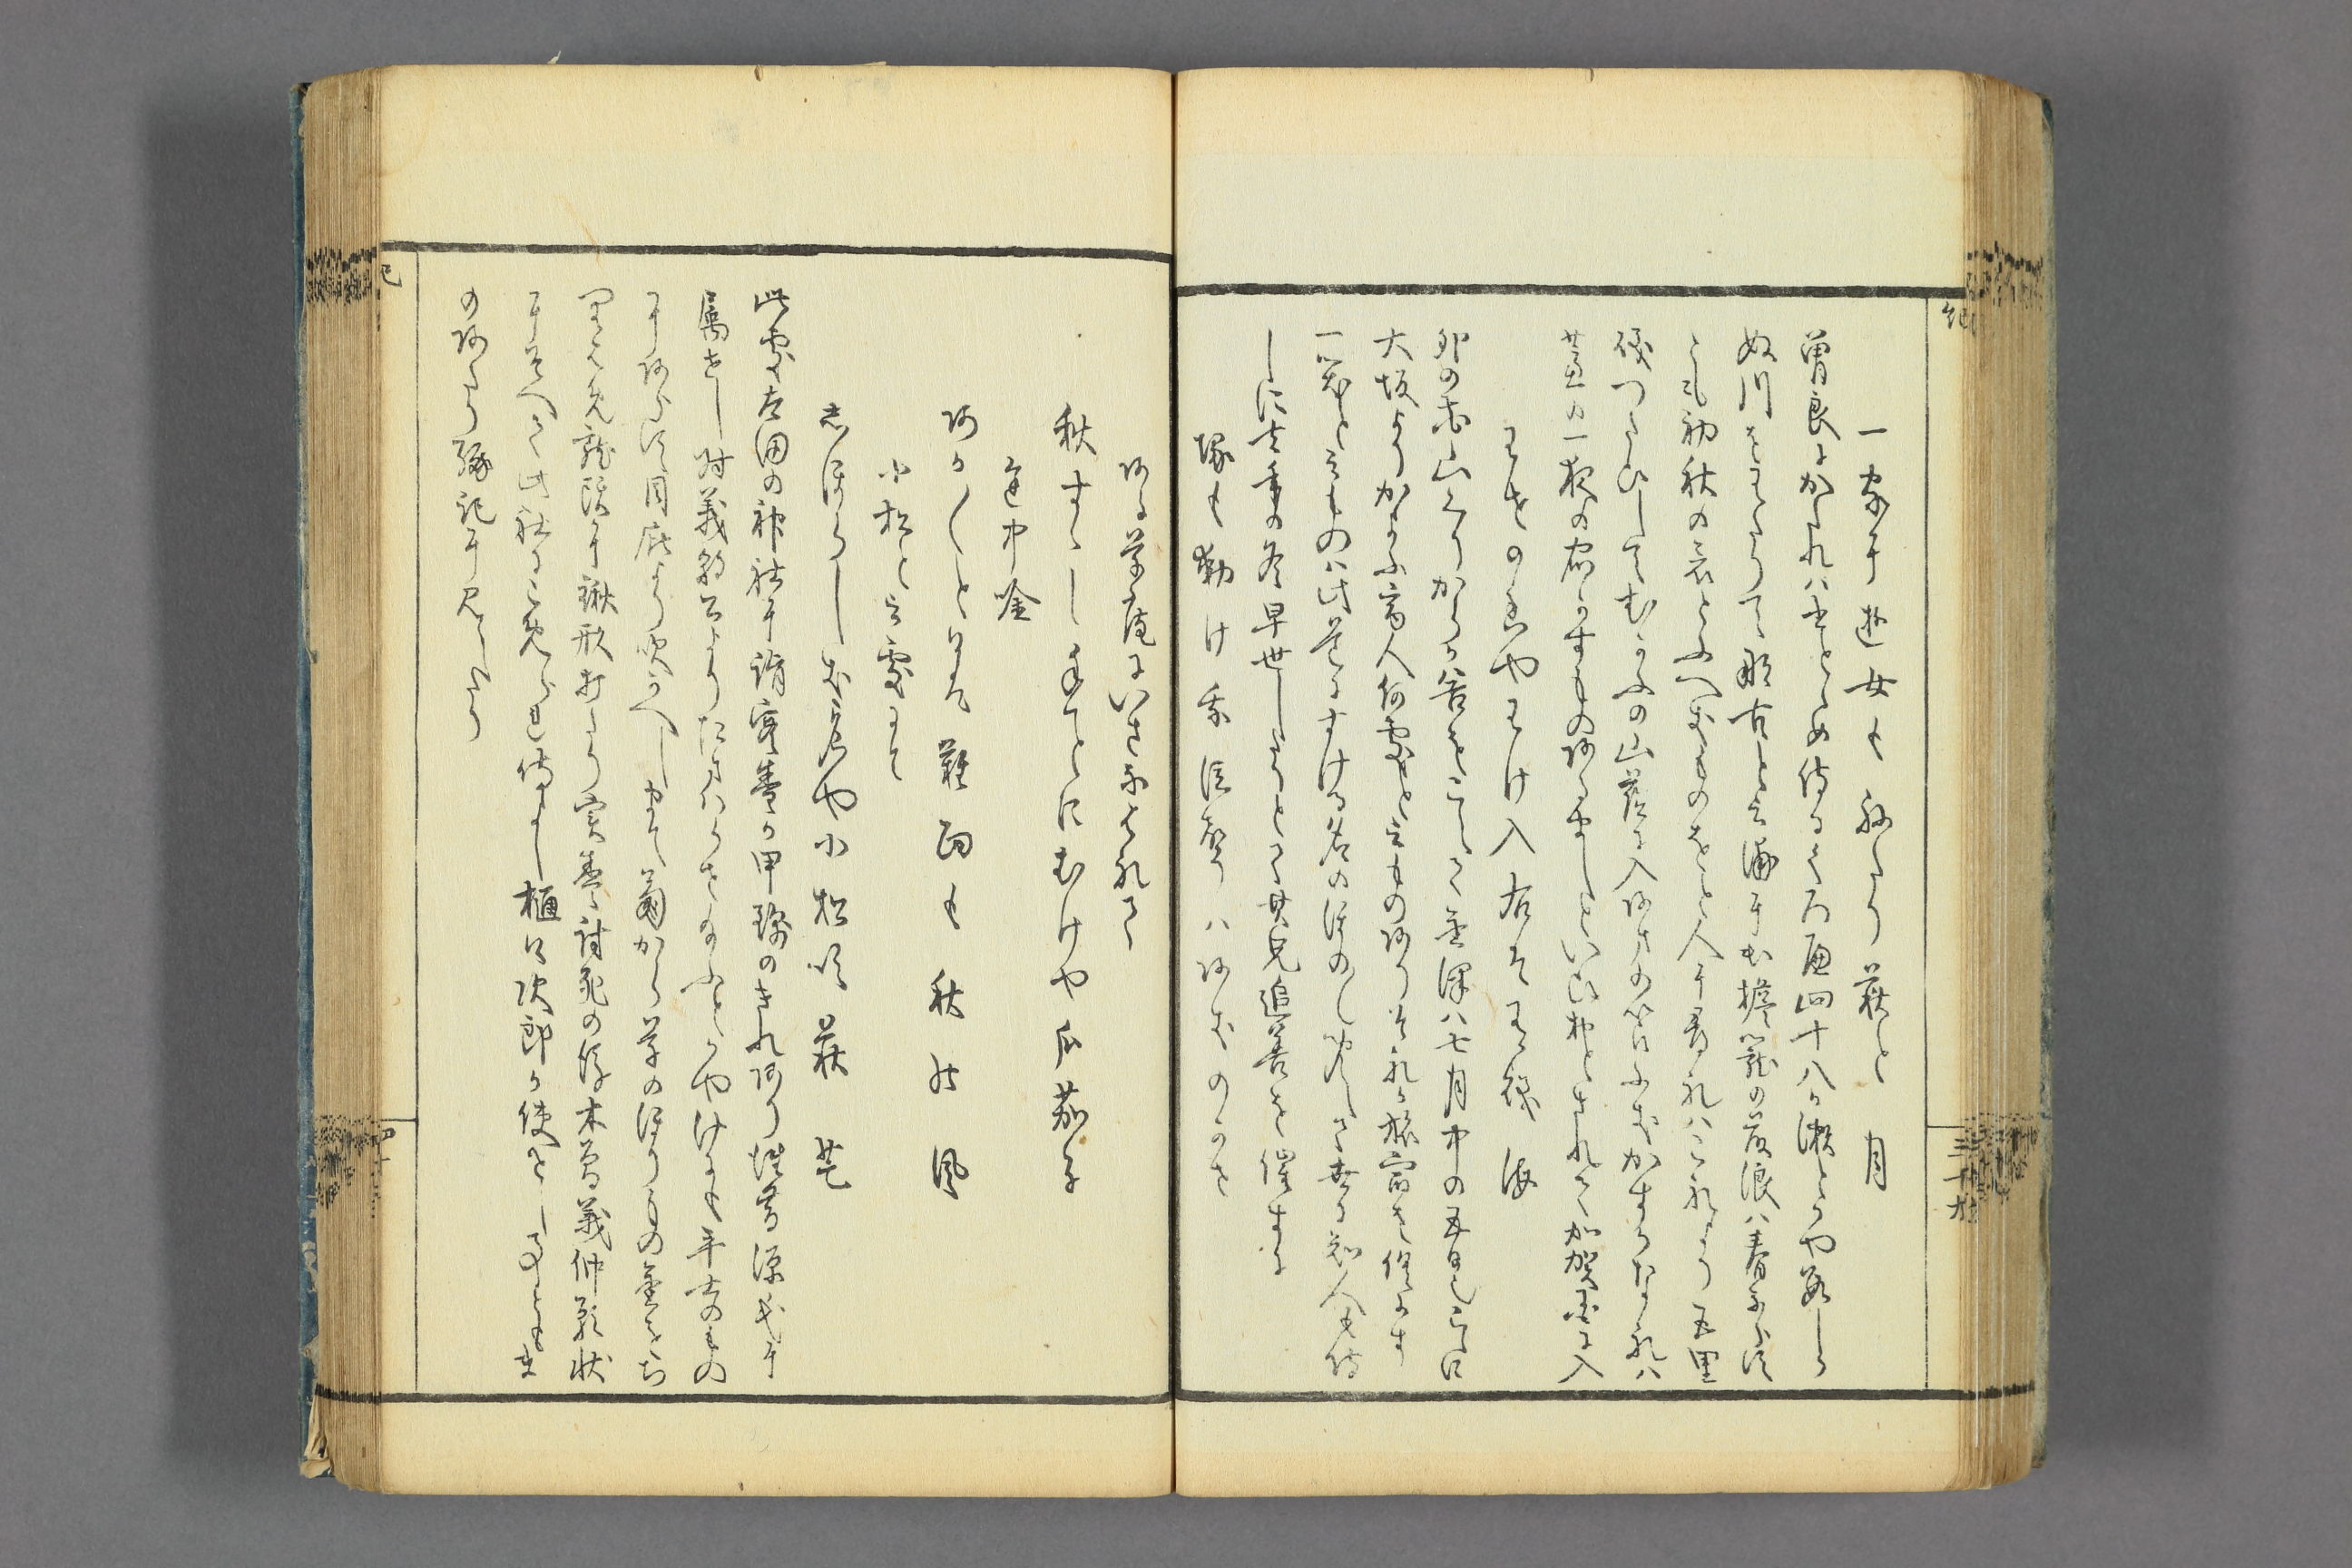 一家に遊女も祢たり萩と月
曽良にかたれハ書とゝめ侍るくろ邊四十八か瀬とかや数しら
ぬ川をわたりて那古と云浦に出擔籠の藤浪ハ春ならす
とも初秋の哀とふへきものをと人に尋れハこれより五里
磯つたひしてむかふの山蔭に入あまの笘ふきかすかなれハ
芦の一夜の宿かすものあるましといひおとされて加賀国に入
わせの香やわけ入右は有磯海
卯の花山くりからか谷をこえて金澤ハ七月中の五日也こゝに
大坂よりかよふ商人何處と云ものありそれか旅宿を倶にす
一笑と云ものハ此道にすける名のほの〳〵聞えて世に知人も侍
しに去年の冬早世したりとて其兄追善を催すに
塚も動け我泣聲ハあきのかせ
ある草庵にいさなはれて
秋すゝし手ことにむけや瓜茄子
途中唫
あか〳〵と日は難面も秋の風
小松と云處にて
志ほらしき名や小松吹萩芒
此處太田の神社に詣實盛か甲錦のきれあり往昔源氏に
属せし時義朝公よりたまはらせ給ふとかやけにも平士のもの
にあらす目庇より吹かへしまて菊から草のほりもの金をち
りはめ龍頭に鍬形打たり実盛討死の後木曽義仲願状
にそへて此社にこめられ侍よし樋口次郎か使せし事ともま
のあたり縁記に見えたり
細
三十六